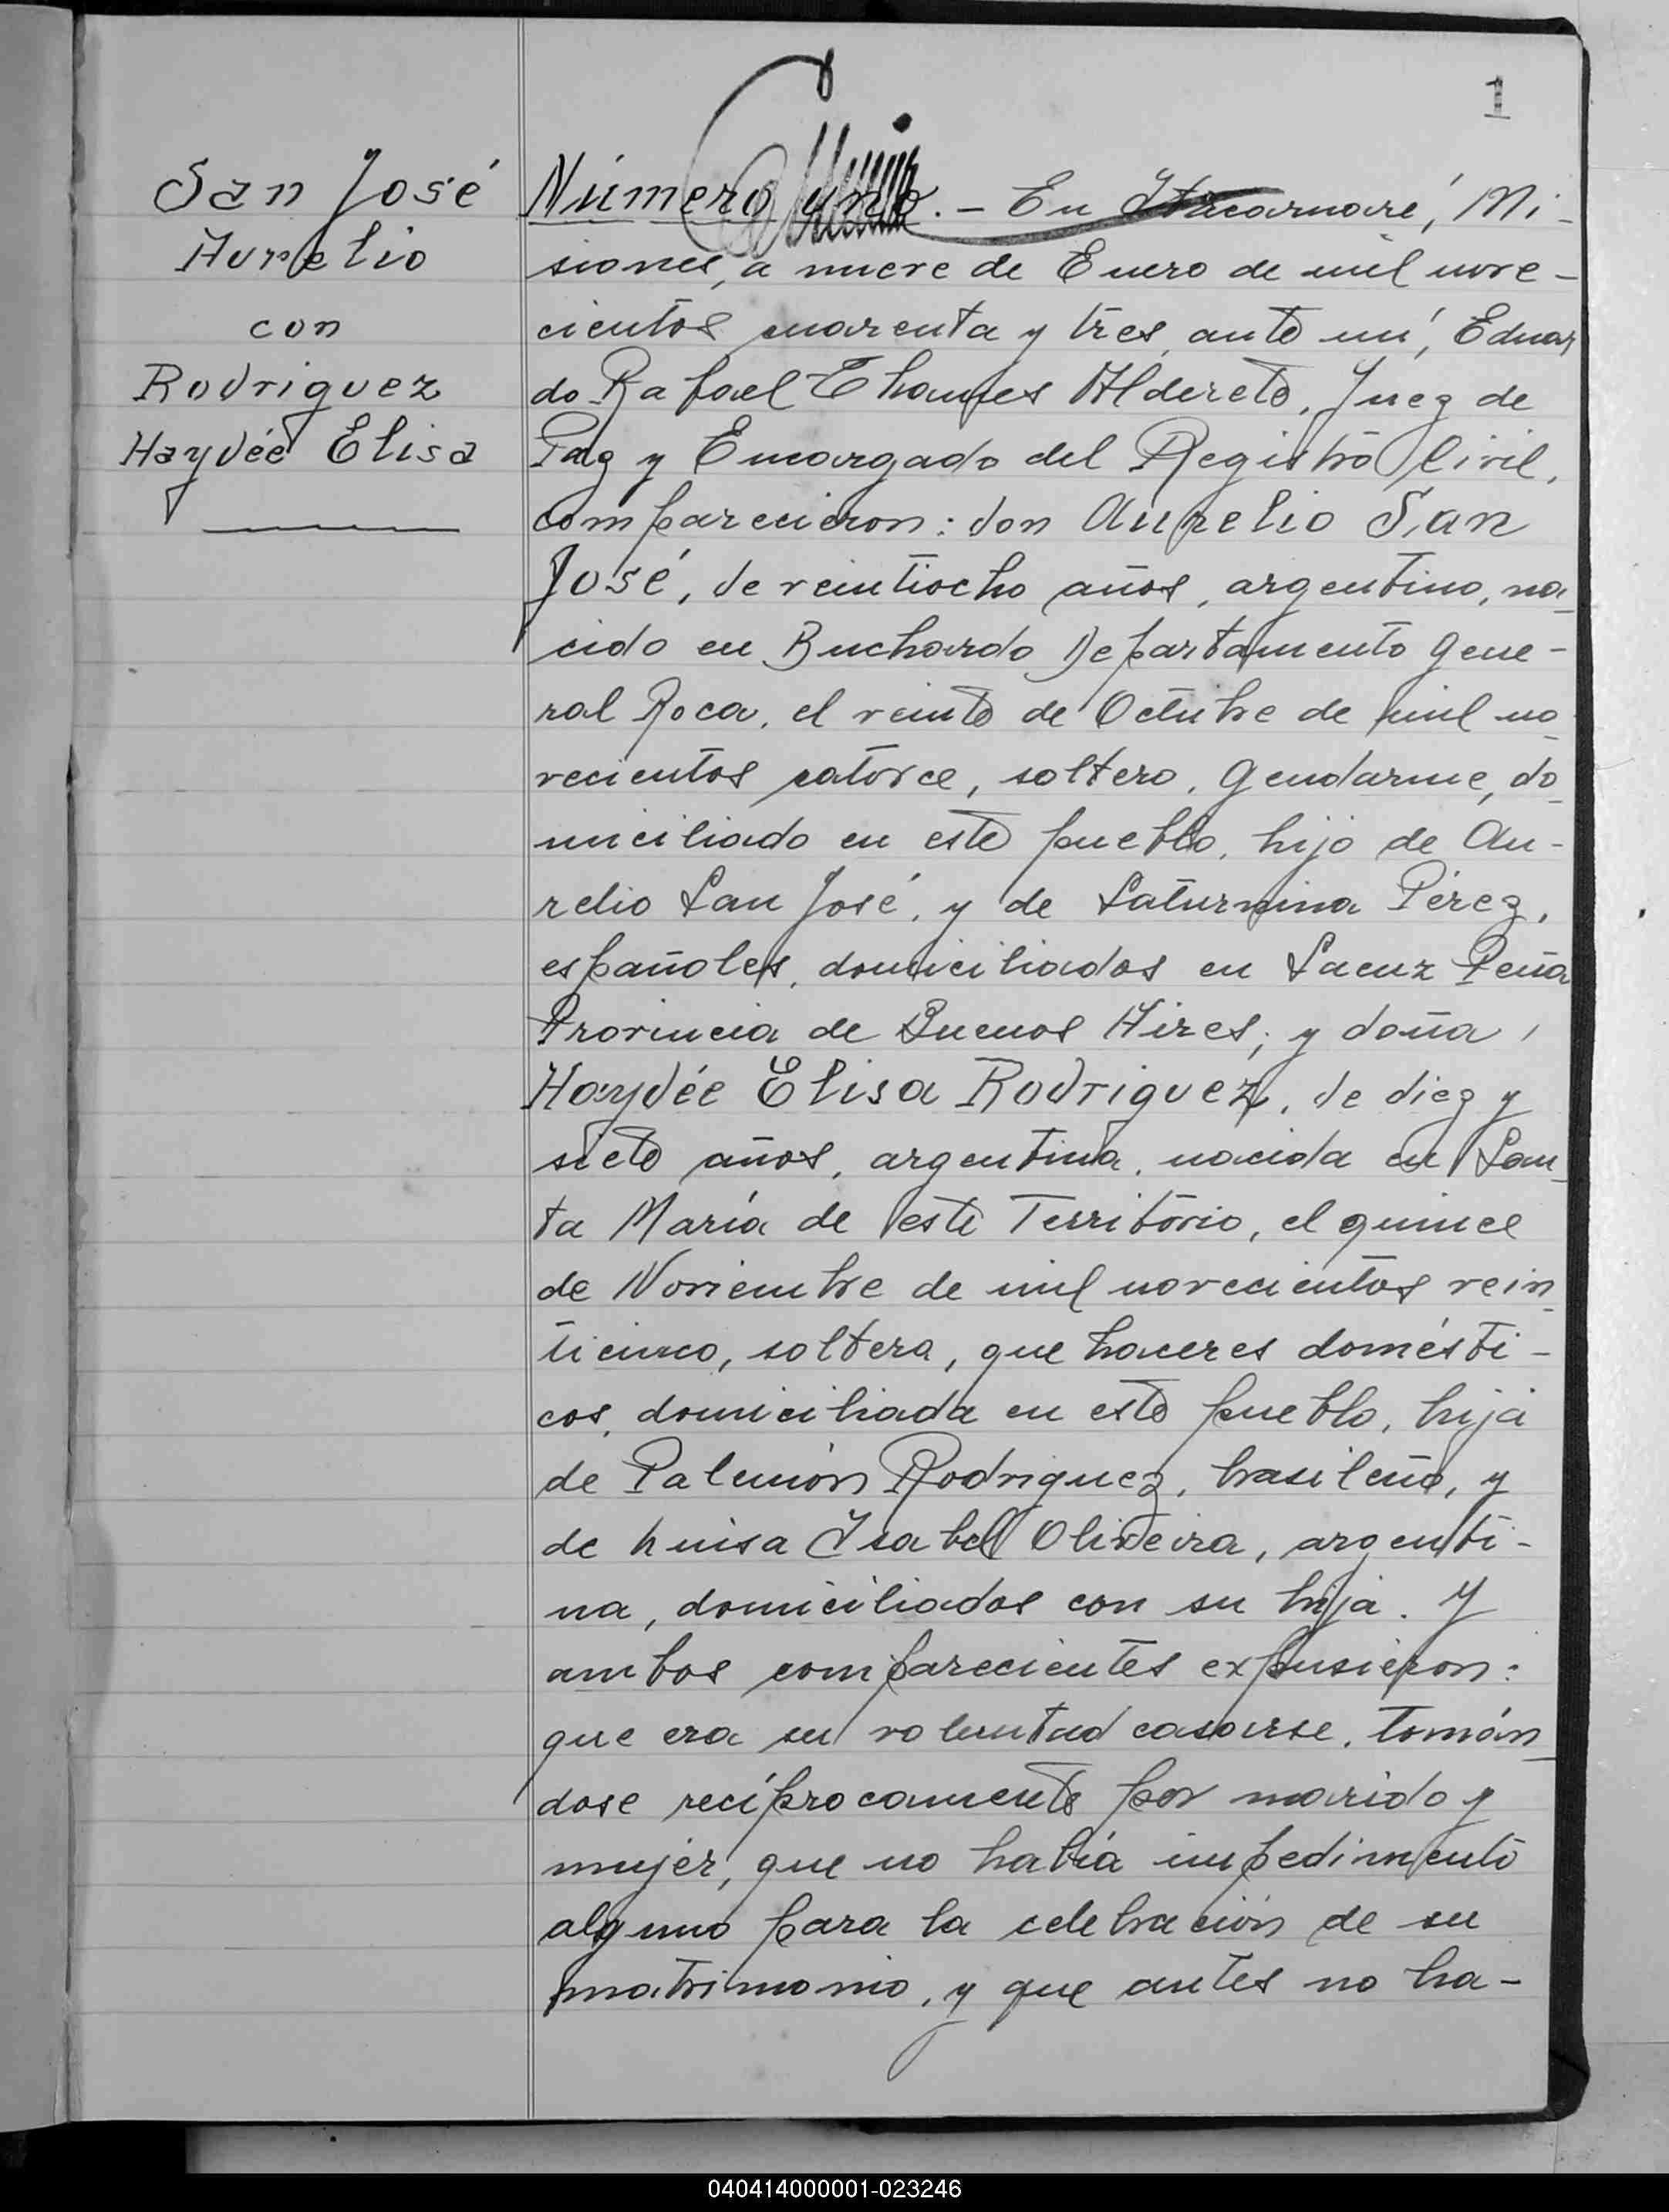 1
San José
Aurelio
con
Rodriguez
Haydée Elisa
Número uno. - En Itacaruaré, Mi-
siones, a nueve de Enero de mil nove-
cientos cuarenta y tres, ante mí, Eduar
do Rafael Thames Alderete, Juez de
Paz y Encargado del Registro Civil,
comparecieron: don Aurelio San
José, de veintiocho años, argentino, na-
cido en Buchardo Departamento Gene-
ral Roca, el veinte de Octubre de mil no-
vecientos catorce, soltero, Gendarme, do-
miciliado en este pueblo, hijo de Au-
relio San José, y de Saturnina Pérez,
españoles, domiciliados en Saenz Peña
Provincia de Buenos Aires; y doña
Haydée Elisa Rodriguez, de diez y
siete años, argentina, nacida en San-
ta María de este Territorio, el quince
de Noviembre de mil novecientos vein-
ticinco, soltera, que haceres domésti-
cos, domiciliada en este pueblo, hija
de Palemón Rodriguez, brasileño, y
de Luisa Isabel Oliveira, argenti-
na, domiciliados con su hija. Y
ambos comparecientes expusieron:
que era su voluntad casarse, tomán-
dose recíprocamente por marido y
mujer, que no había impedimento
alguno para la celebración de su
matrimonio, y que antes no ha-
040414000001-023246